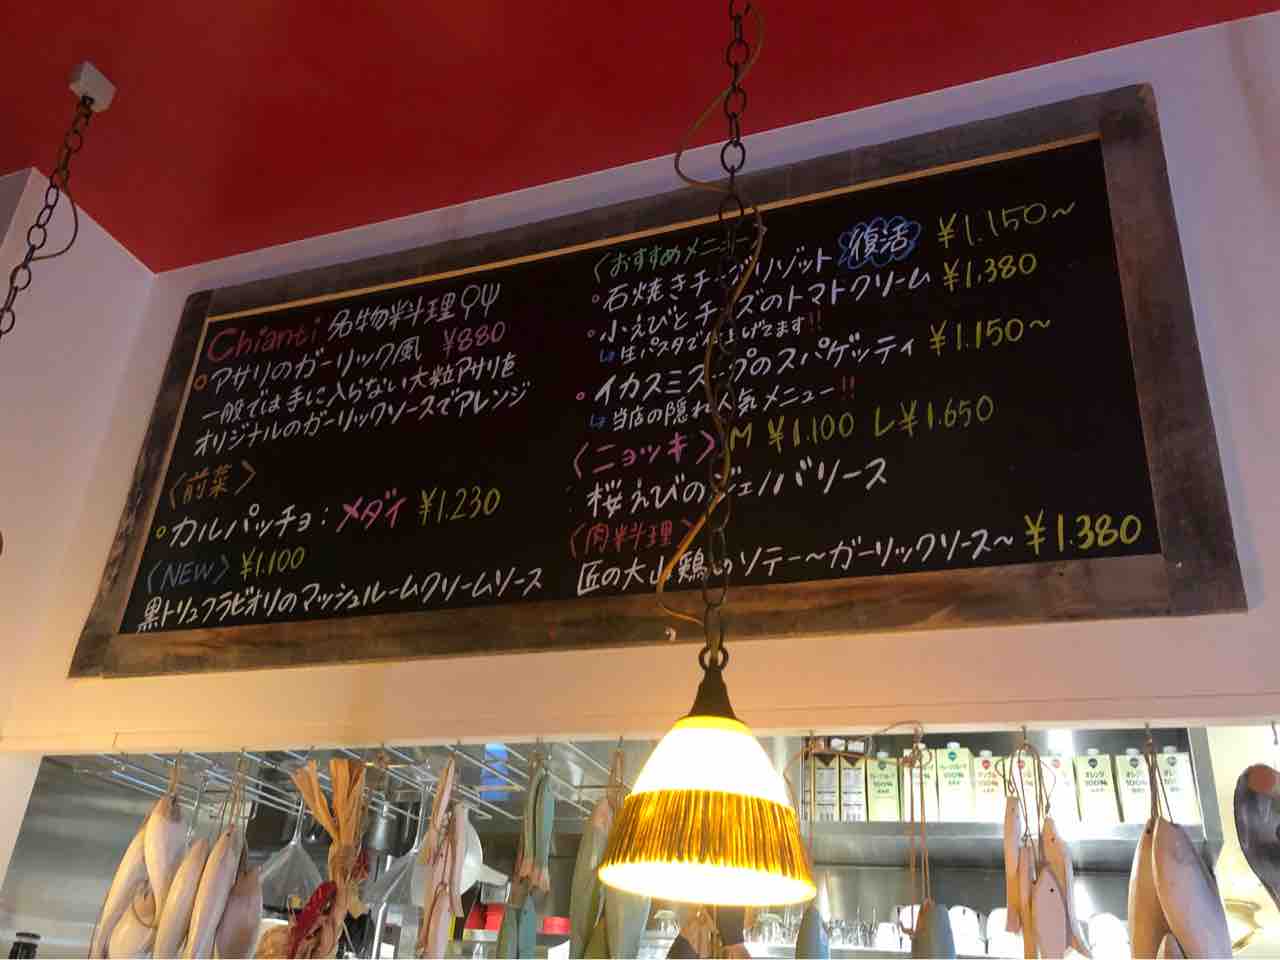 Chianti 名物料理
アサリのガーリック風 ¥880
一般では手に入らない大粒アサリを
オリジナルのガーリックソースでアレンジ
〈前菜〉
カルパッチョ:メダイ ¥1.230
〈NEW〉¥1.100
黒トリュフラビオリのマッシュルームクリームソース
〈おすすめメニュー
石焼きチーズリゾット 復活 ¥1.150～
小えびとチーズのトマトクリーム ¥1.380
↳生パスタで仕上げてます!!
イカスミスープのスパゲッティ ¥1.150～
↳当店の隠れ人気メニュー!!
〈ニョッキ〉M ¥1.100 L¥1.650
桜えびのジェノバソース
〈肉料理〉
匠の大山鶏のソテー～ガーリックソース～ ¥1.380
100%
100%
100%
100%
100%